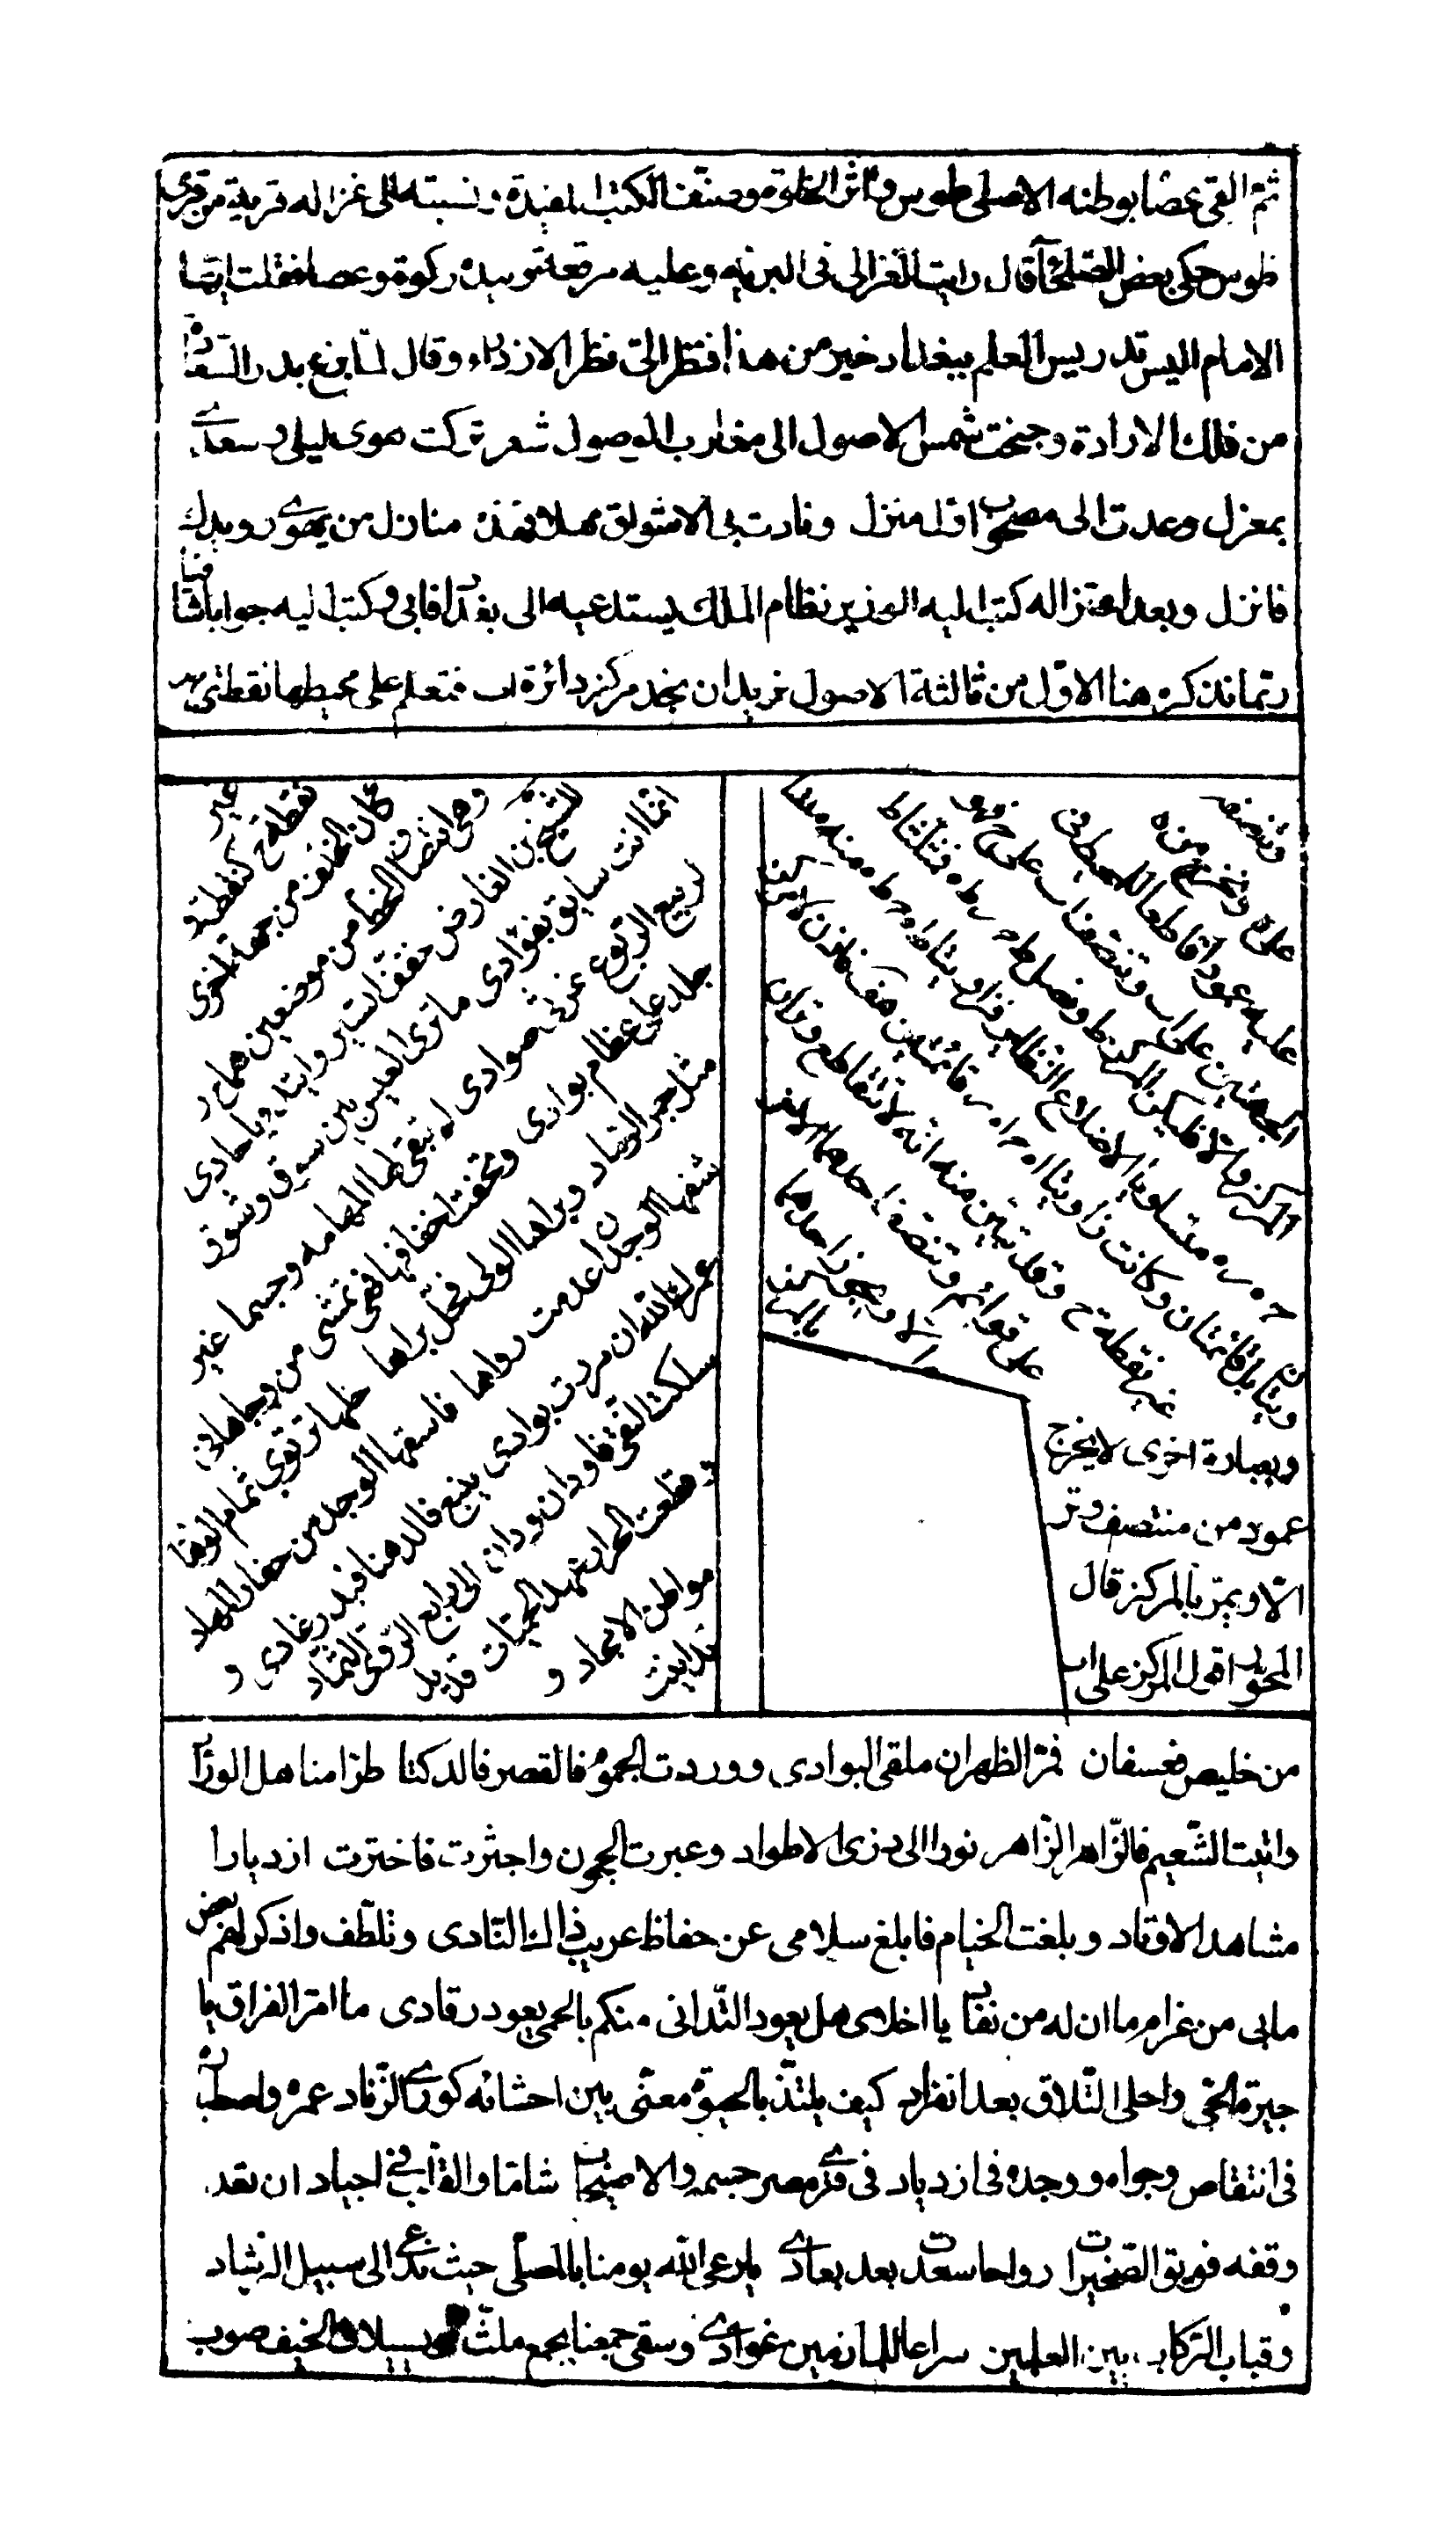 ثم القى عصاه بوطنه الاصلى طوس وآثر الخلوة وصنف الكتب المفيدة ونسبته الى غزاله قرية من قرى
طوس حكى بعض الصلحاء قال رايت الغزالى فى البرية وعليه مرقعة وبيده ركوة وعصا فقلت ايها
الامام اليس تدريس العلم ببغداد خير من هذا فنظر الىّ نظر الازدراء وقال لما بزغ بدر السعادة
من فلك الارادة وجنحت شمس الاصول الى مغارب الوصول شعر تركت هوى ليلى وسعدى
بمعزل وعدت الى مصحوب اول منزل ونادت بى الاشواق مهلا فهذه منازل من يهوى رويدك
فانزل وبعد اعتزاله كتب اليه الوزير نظام الملك يستدعيه الى بغداد فابى وكتب اليه جوابا شافيا
ربما نذكره هنا الاول من ثالثة الاصول نريد ان نجد مركز دائرة اب فنعلم على محيطها نقطتى
وننصفه
على ه ونخرج من ه
عليه عمودا قاطعا للمحيط فى
الجهتين على اب وننصف اب على ح فهو
المركز والا فليكن المركز ط ونصل ط
متساويا الاضلاع النظاير فزاويتا
وكانت زاويتا قائمتين هف فاذن لا مركز
غير نقطة ح وقد تبين منه انه لا يتقاطع وتران
على قوائم وينتصف احدهما الا ويجوز احدهما
بالمركز
وبعبارة اخرى لا يخرج
عمود من منتصف وتر
الا ويمر بالمركز قال
المحرر اقول المركز على اب
غير
نقطة ح كنقطة
كان الخلف من جهة اخرى
وهى انتصاف الخط من موضعين هما ح ر
للشيخ بن الفارض خفف السير واتئد يا حادى
انما انت سابق بفؤادى ما ترى العيس بين سوق وشوق
لربيع الربوع غرثى صوادى لم تبقى لها المهامه جسما غير
جلد على عظام بوادى وتحفت اخفافها فهى تمشى من وجاها فى
مثل جمر الرماد وبراها الونى فحل براها خلها ترتوى ثمام الوهاد
شفها الوجد ان عدمت رواها فاسقها الوجد من جفار المهاد
عمرك الله ان مررت بوادى ينبع فالدهنا فبدر غادى و
سلكت النقا فاودان ودان الى رابغ الروى الثماد
وقطعت الحرار عمدا لخيمات قديد
مواطن الامجاد و
تدانيت
من خليص فعسفان فمر الظهران ملقى البوادى ووردت الجموم فالقصر فالدكنا طرا مناهل الوراد
واتيت التنعيم فالزاهر الزاهر نورا الى ذرى الاطواد وعبرت الحجون واجتزت فاخترت ازديارا
مشاهد الاوتاد وبلغت الخيام فابلغ سلامى عن حفاظ عريب ذاك النادى وتلطف واذكر لهم بعض
مابى من غرام ما ان له من نفاد يا اخلاى هل يعود التدانى منكم بالحمى بعود رقادى ما امر الفراق يا
جيرة الحى واحلى التلاق بعد انفراد كيف يلتذ بالحيوة معنى بين احشائه كورى الزناد عمره واصطباره
فى انتقاص وجواه ووجده فى ازدياد فى قرى مصر جسمه والاصيحاب شاما والقلب فى اجياد ان تعد
وقفه فويق الصخيرات رواحا سعدت بعد بعادى يا رعى الله يومنا بالمصلى حيث ندعى الى سبيل الرشاد
وقباب الركاب بين العلمين سراعا للمازمين غوادى وسقى جمعنا بجمع ملثا ولييلات الخيف صوب